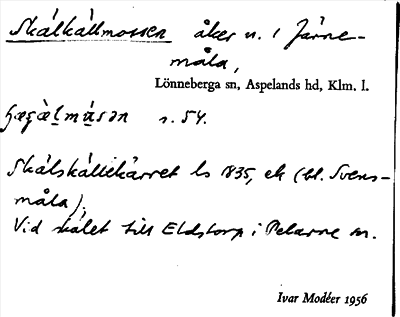 Skälkällmossen åker n. i Järne-
måla,
Lönneberga sn, Aspelands hd, Klm. l.
s. 54.
Skälskällekärret ls 1835, ek (bl. Svens-
måla).
Vid skälet till Eldstorp i Pelarne sn.
Ivar Modéer 1956